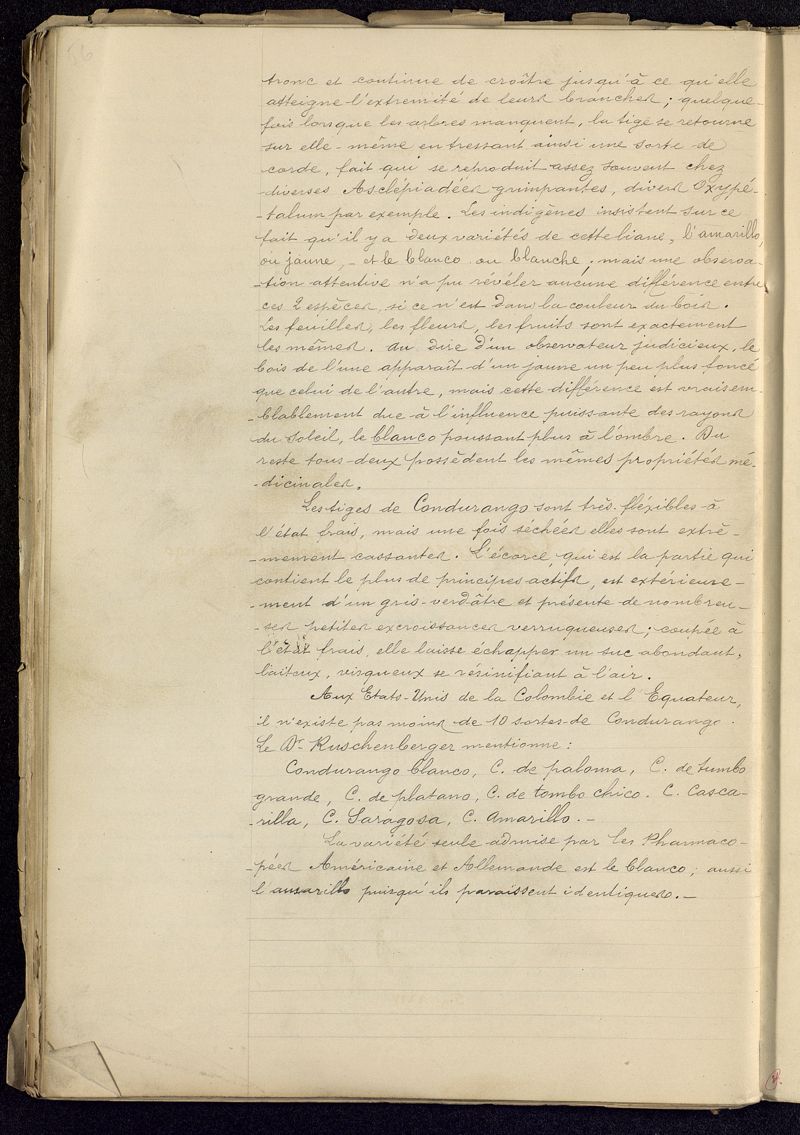 56
tronc et continue de croître jusqu'à ce qu'elle
atteigne l'extremité de leurs branches; quelque-
fois lorsque les arbres manquent, la tige se retourne
sur elle-même en tressant ainsi une sorte de
corde, fait qui se reproduit assez souvent chez
diverses Asclépiadées grimpantes, divers Oxypé-
-talum par exemple. Les indigènes insistent sur ce
fait qu'il y a deux variétés de cette liane, l'amarillo,
ou jaune, - et le blanco ou blanche, mais une observa-
-tion attentive n'a pu révéler aucune différence entre
ces 2 espèces, si ce n'est dans la couleur du bois.
Les feuilles, les fleurs, les fruits sont exactement
les mêmes. Au dire d'un observateur judicieux, le
bois de l'une apparaît d'un jaune un peu plus foncé
que celui de l'autre, mais cette différence est vraisem-
-blablement due à l'influence puissante des rayons
du soleil, le blanco poussant plus à l'ombre. Du
reste tous deux possèdent les mêmes propriétés mé-
-dicinales.
Les tiges de Condurango sont très fléxibles à
l'état frais, mais une fois séchées elles sont extrê-
-mement cassantes. L'écorce, qui est la partie qui
contient le plus de principes actifs, est extérieure-
-ment d'un gris-verdâtre et présente de nombreu-
-ses petites excroissances verruqueuses; coupée à
l'état frais, elle laisse échapper un suc abondant,
laiteux, visqueux se résinifiant à l'air.
Aux Etats-Unis de la Colombie et l'Equateur,
il n'existe pas moins de 10 sortes de Condurango.
Le Dr Ruschenberger mentionne:
Condurango blanco, C. de paloma, C. de tumbo
grande, C. de platano, C. de tombo chico. C. Casca-
-rilla, C. Saragosa, C. Amarillo. -
La variété seule admise par les Pharmaco-
-pées Américaine et Allemande est le blanco; aussi
l'amarillo puisqu'ils paraissent identiques. -